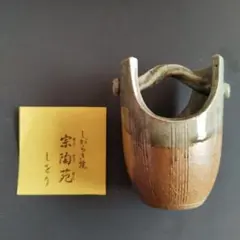 しがらき焼
宗陶苑
しをり